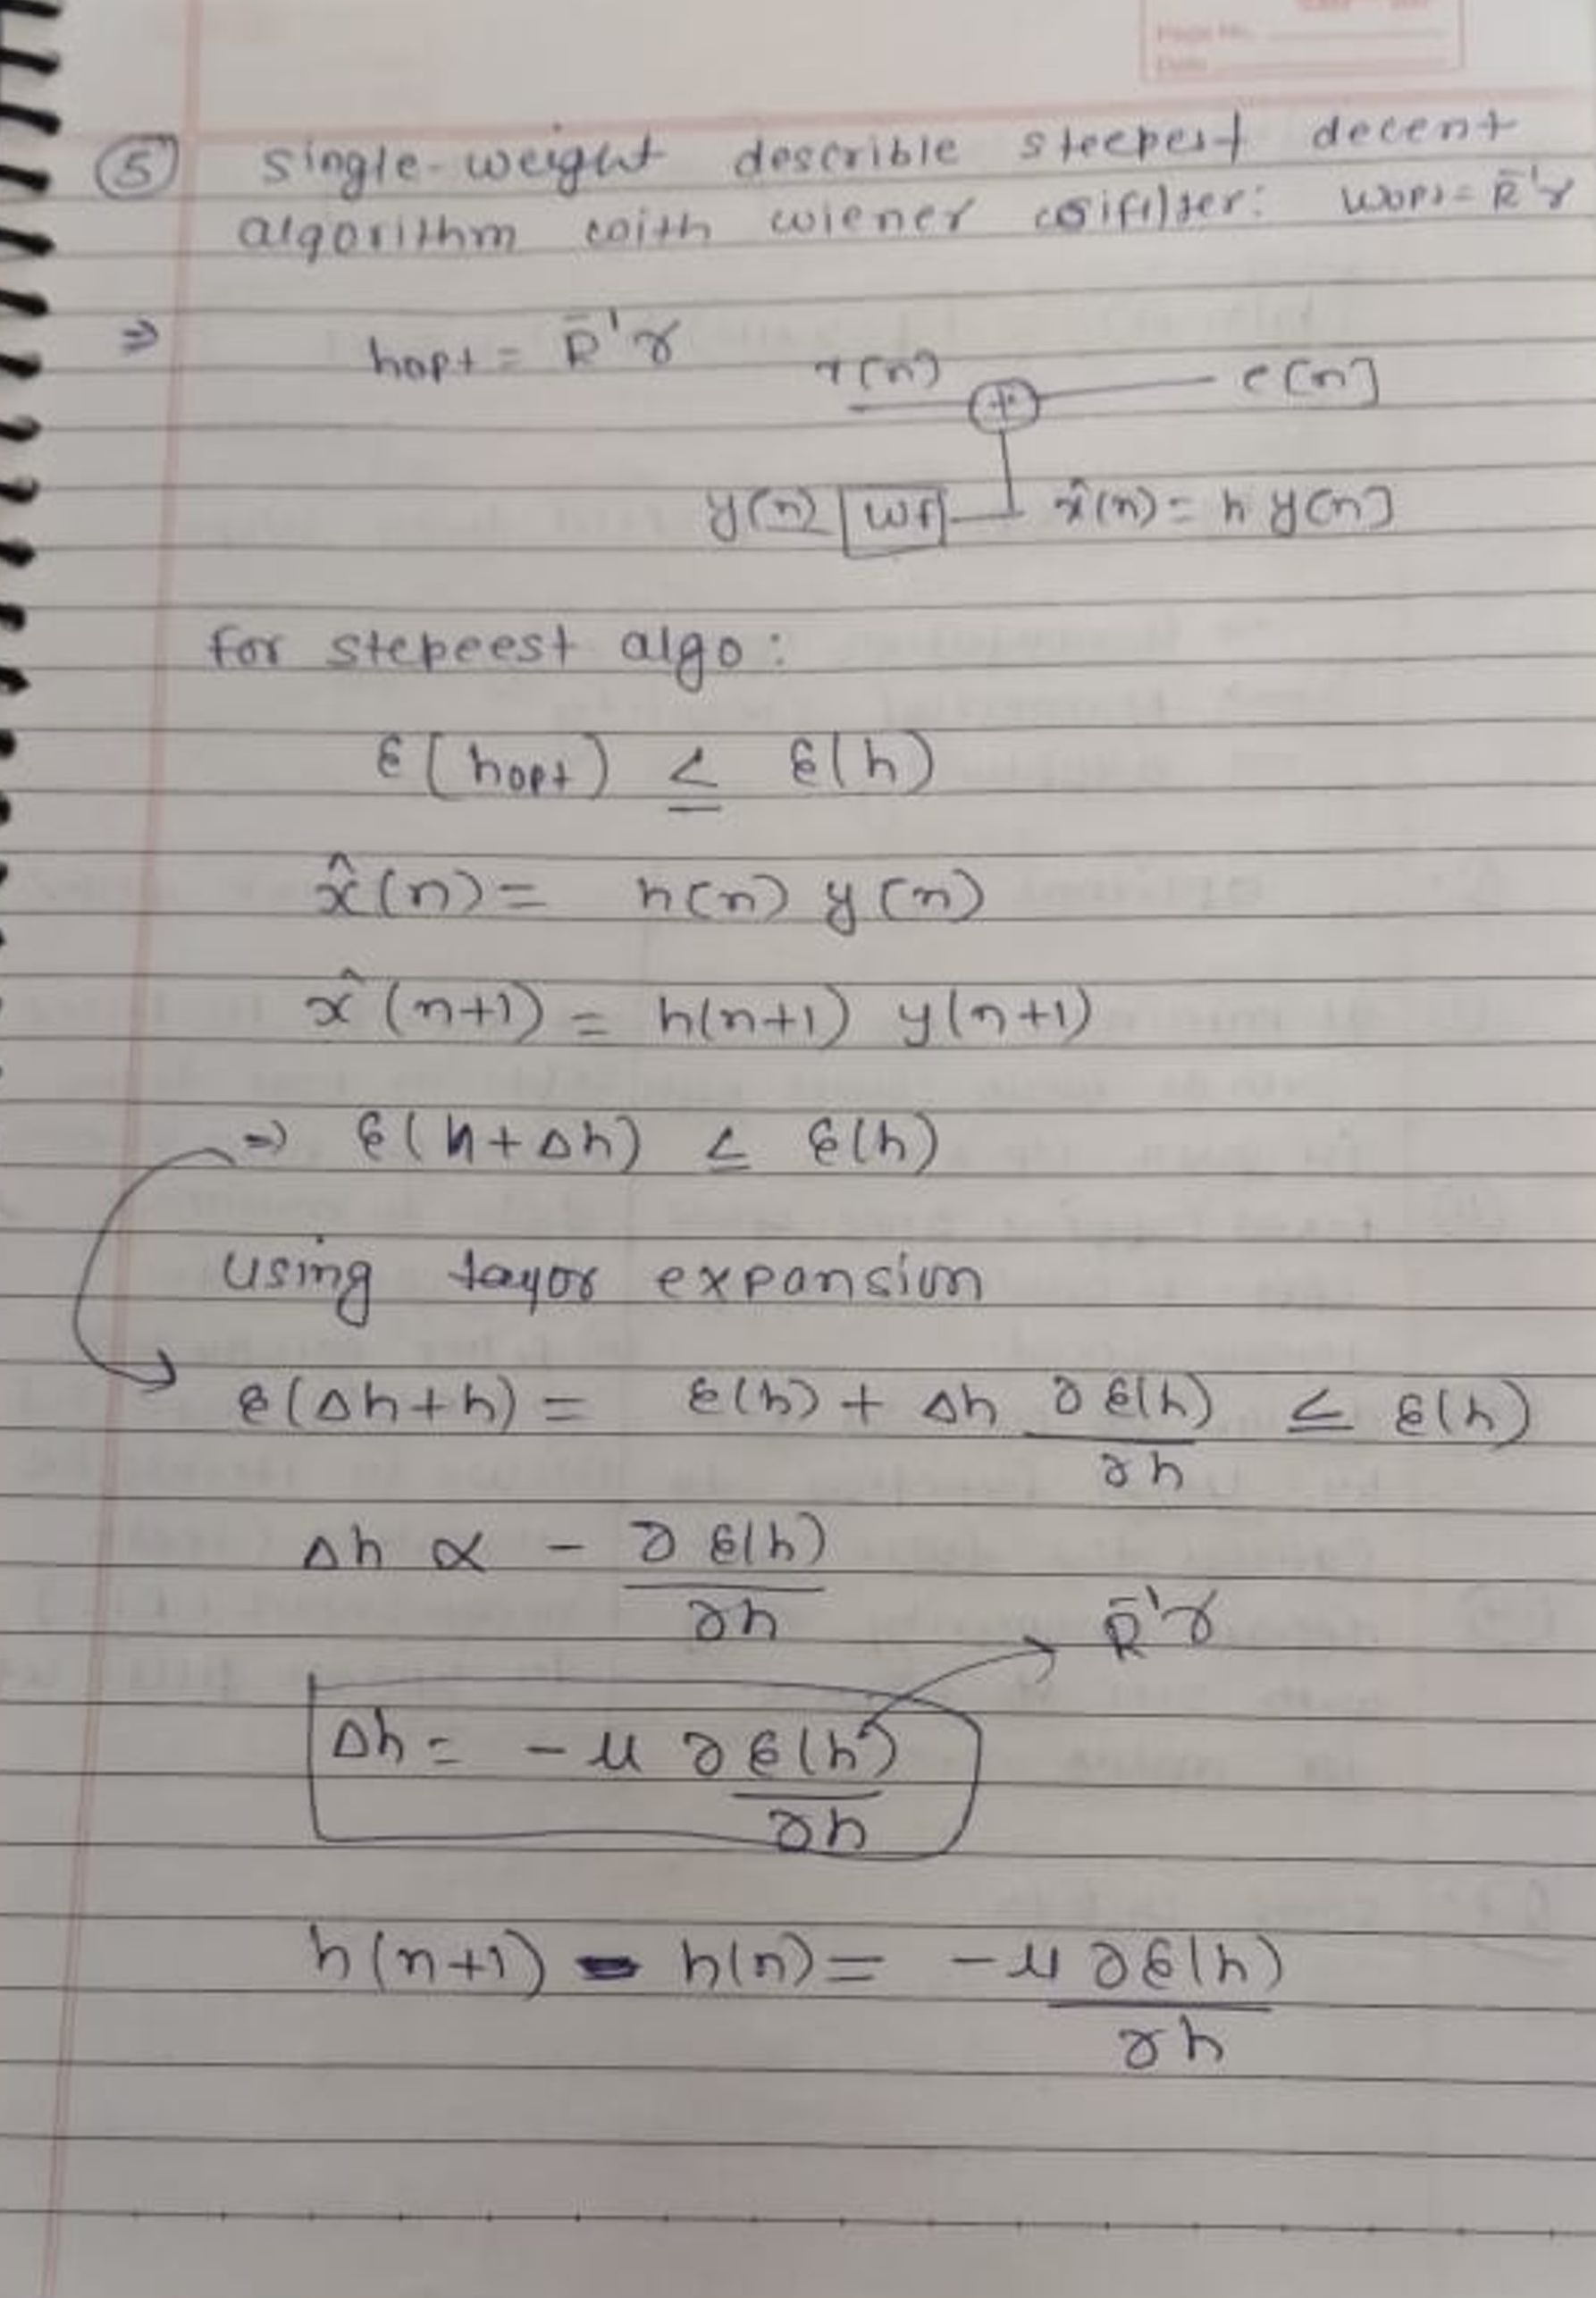 Page No.
Date
5 single-weight describle steepest decent
algorithm with wiener filter: wopt = R⁻¹r
⇒ hopt = R⁻¹r
x(n) + e[n]
y(n) WF x̂(n) = h y[n]
for stepeest algo:
ε(hopt) ≤ ε(h)
x̂(n) = h(n) y(n)
x̂(n+1) = h(n+1) y(n+1)
⇒ ε(h+Δh) ≤ ε(h)
using tayor expansion
ε(Δh+h) = ε(h) + Δh ∂ε(h)/∂h ≤ ε(h)
Δh ∝ - ∂ε(h)/∂h
R⁻¹r
Δh = -μ ∂ε(h)/∂h
h(n+1) - h(n) = -μ ∂ε(h)/∂h